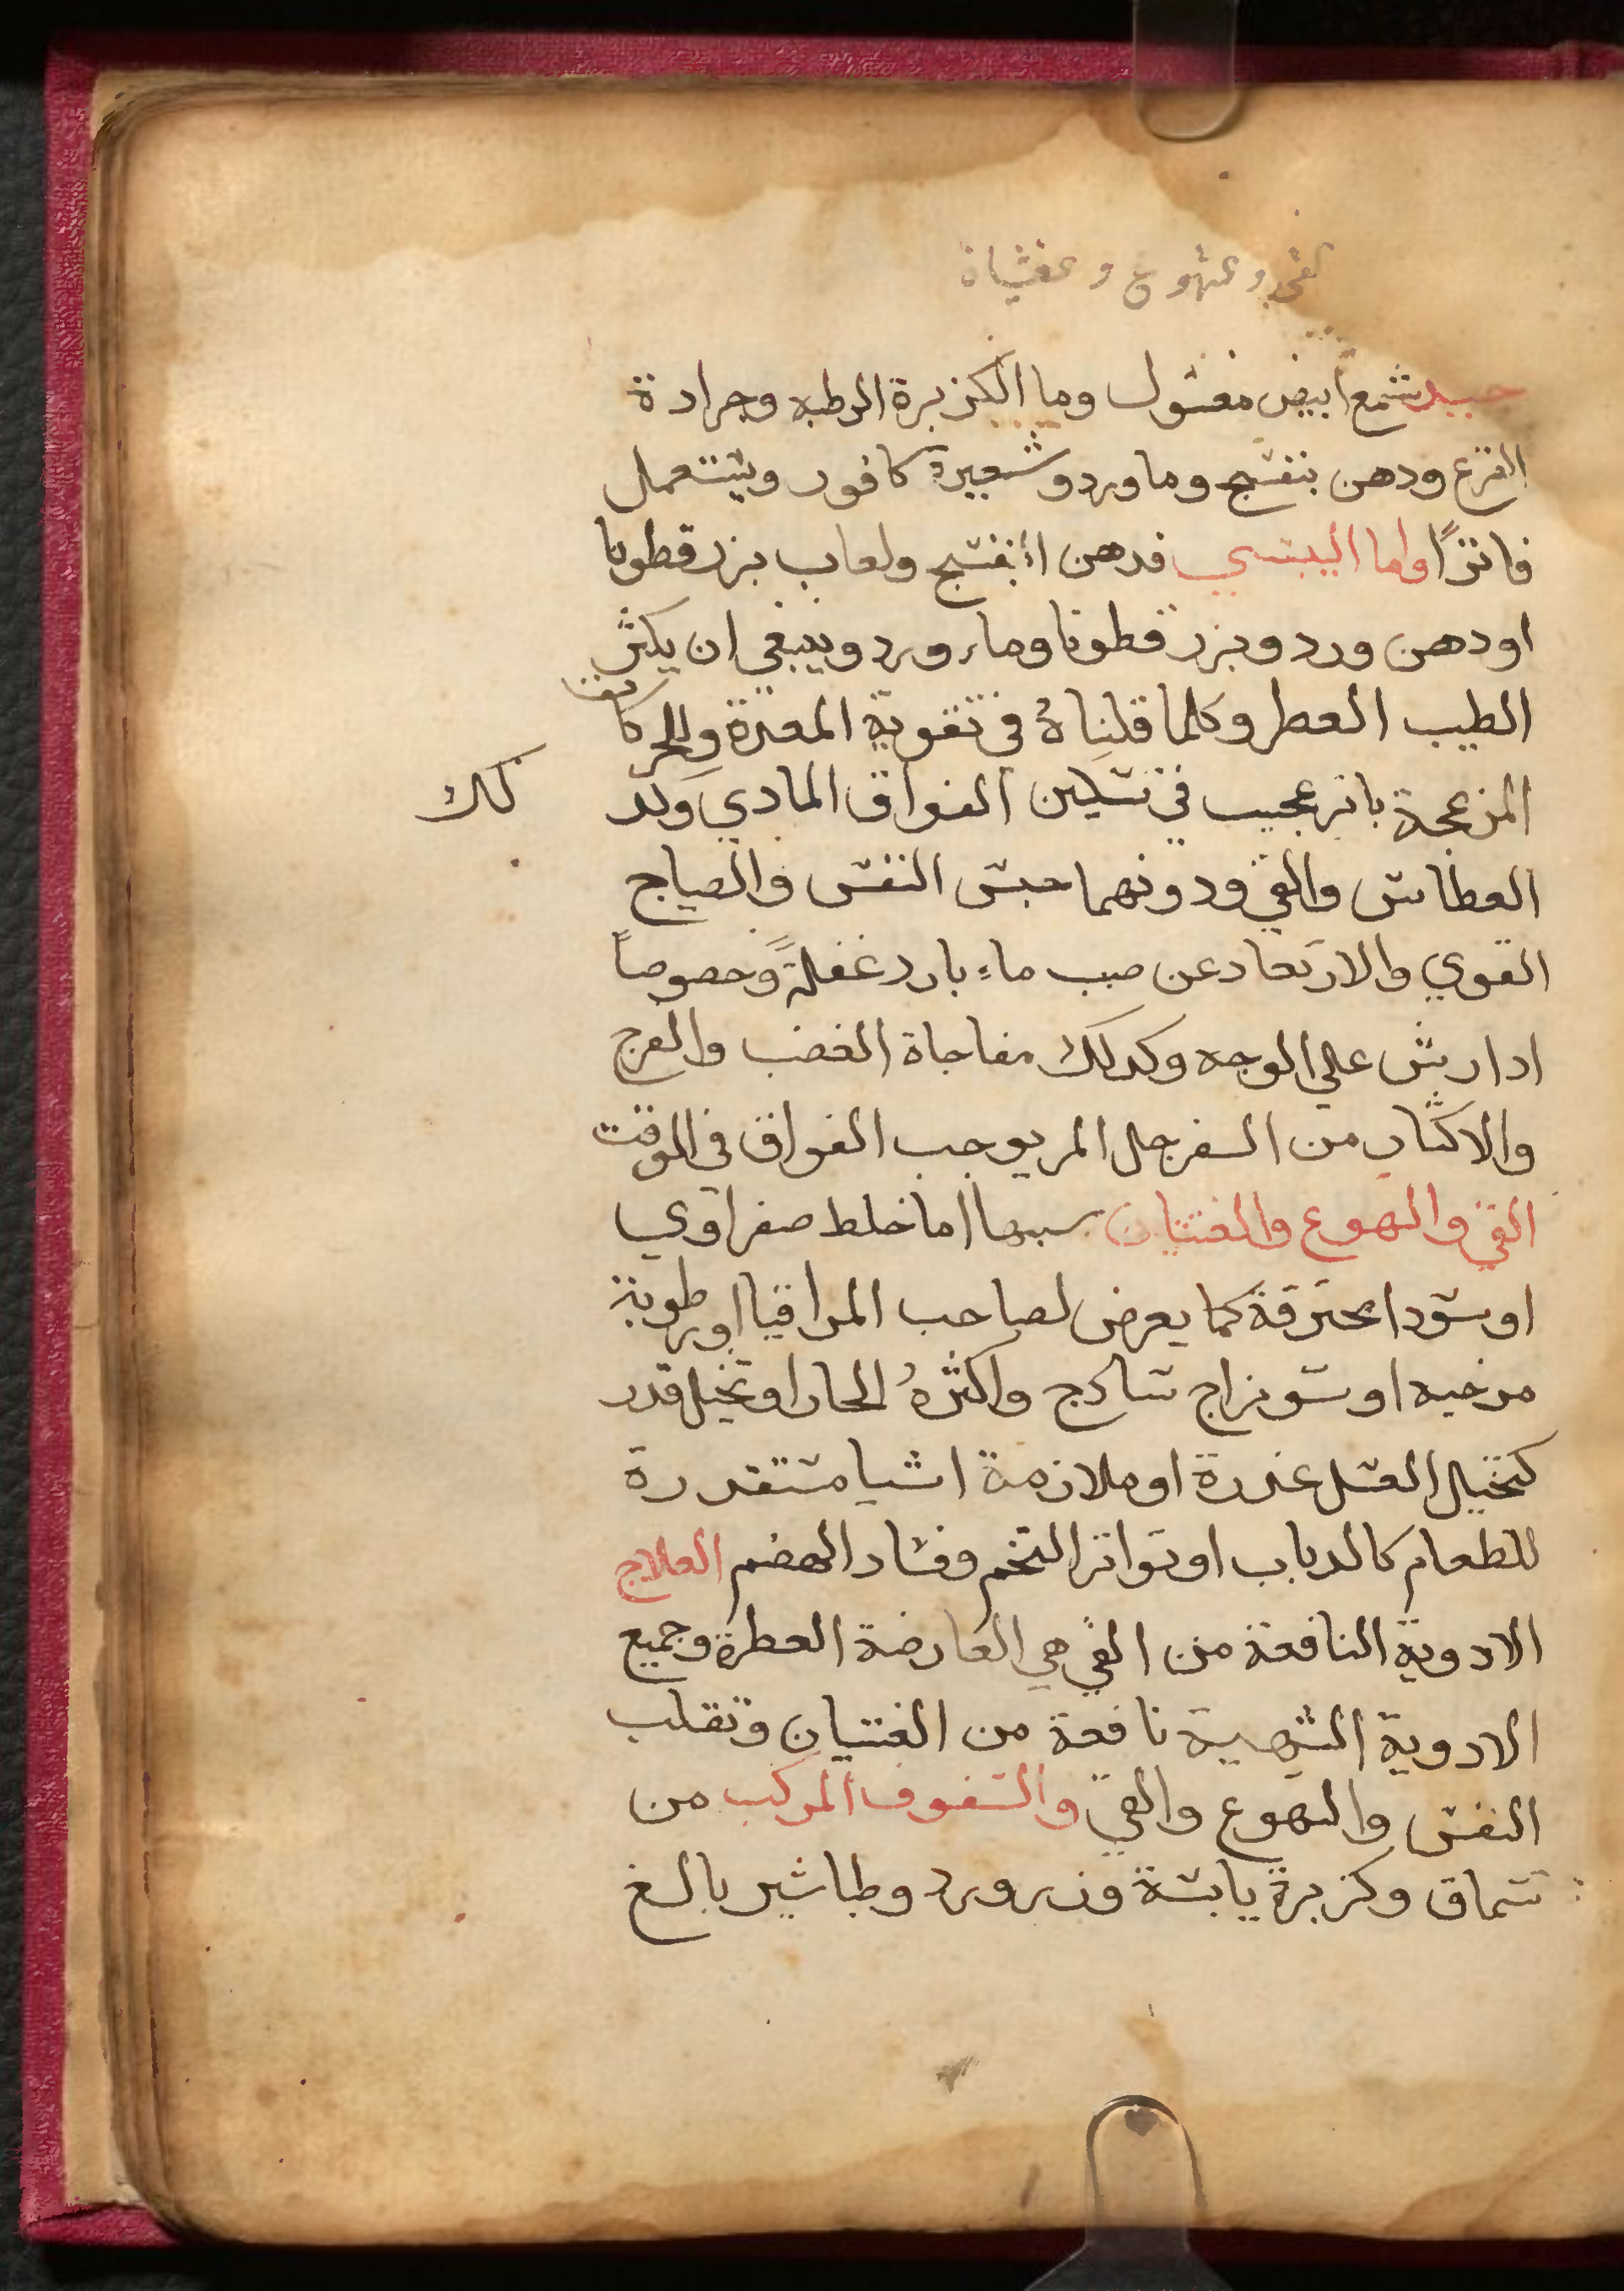 جيد شمع ابيض مغسول وما الكزبرة الرطبه وجرادة
القرع ودهن بنفسج وما ورد وشعيرة كافور ويستعمل
فاترًا واما اليبسي فدهن البنفسج ولعاب بزر قطونا
او دهن ورد وبزر قطونا وماء ورد وينبغي ان يكثر
الطيب العطر وكلما قلناهُ في تقوية المعدة والحركات
المزعجة باثر عجيب في تسكين الفواق المادي وكد لك
العطاس والقي ودونهما حبس النفس والصياح
القوي والارتعاد عن صب ماء بارد غفلةً وخصوصاً
ادا رش علي الوجه وكدلك مفاجاة الغضب والفرح
والاكثار من السفرجل المر يوجب الفواق في الوقت
القي والهوع والغثيان سببها اما خلط صفراوي
او سودا محترقة كما يعرض لصاحب المراقيا او رطوبة
مرخيه او سو مزاج سادج واكثرهُ الحار او تخيل قدر
كتخيل العسل عدرة او ملازمة اشيا مستقدرة
للطعام كالدباب او تواتر التخم وفساد الهضم العلاج
الادوية النافعة من القي هي العارضة العطرة وجميع
الادوية الشهية نافعة من الغثيان وتقلب
النفس والهوع والقي والسفوف المركب من
سماق وكزبرة يابسة وزر ورد وطباشير بالغ